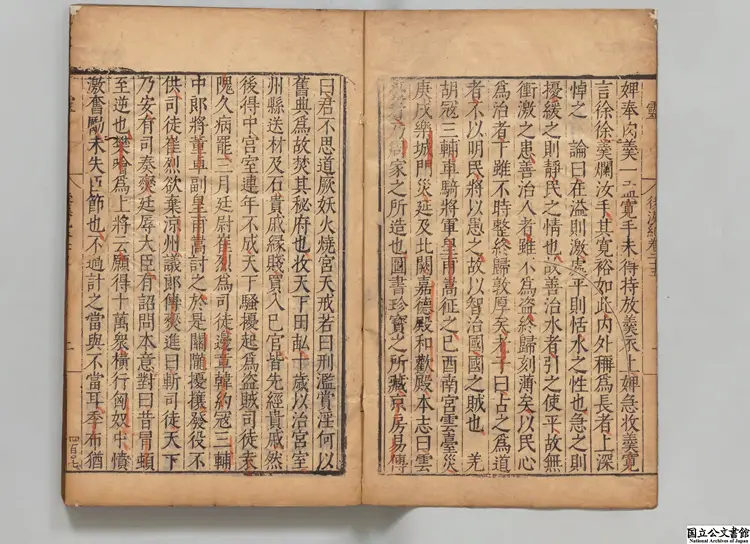 婢奉肉羹一盃寬手未得持放羹衣上婢急收羹寬
言徐徐羹爛汝手其寬裕如此内外稱為長者上深
悼之 論曰在溢則激處平則恬水之性也急之則
擾緩之則靜民之情也故善治水者引之使平故無
衝激之患善治人者雖不為盗終歸刻薄矣以民心
為治者下雖不時整終歸敦厚矣老子曰古之為道
者不以明民將以愚之故以智治國國之賊也 羌
胡冠三輔車騎將軍皇甫嵩征之己酉南宮雲臺災
庚戍樂城門災延及北闕嘉德殿和歡殿本志曰雲
臺者乃周家之所造也圖書珍寳之所藏京房易傳
曰君不思道厥妖火燒宮天戒若曰刑濫賞淫何以
舊典為故焚其秘府也收天下田畝十歲以治宮室
州縣送材及石貴戚縁賤買入己官皆先經貴戚然
後得中宮室連年不成天下騷擾起為盗賊司徒袁
隗久病罷三月廷尉崔烈為司徒邊章韓約冠三輔
中郎將董卓副皇甫嵩討之於是關隴擾攘發役不
供司徒崔烈欲棄涼州議郎傅爕進曰斬司徒天下
乃安有司奏爕廷辱大臣有詔問本意對曰昔冒頓
至逆也樊噲為上將云願得十萬衆横行匈奴中憤
激奮勵未失臣節也不過計之當與不當耳季布猶
靈
後漢紀卷二十五
四百九七
国立公文書館
National Archives of Japan